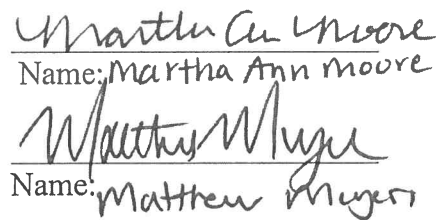 Martha Ann Moore
Name: Martha Ann Moore
Matthew Meyer
Name: Matthew Meyers